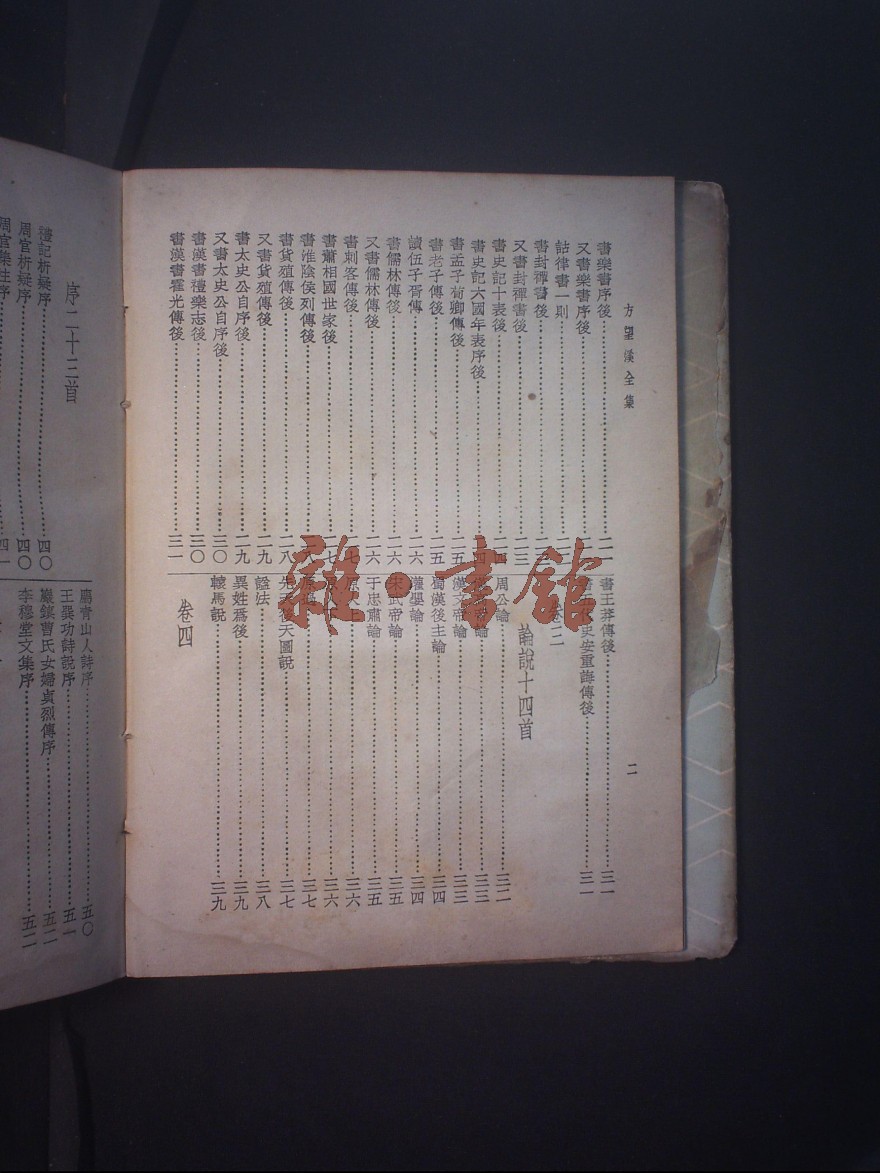 方望溪全集
二
書樂書序後 二一
又書樂書序後
詁律書一則
書封禪書後
又書封禪書後 二三
書史記十表後 二四
書史記六國年表序後
書孟子荀卿傳後 二五
書老子傳後 二五
讀伍子胥傳 二六
書儒林傳後 二六
又書儒林傳後 二六
書刺客傳後 二七
書蕭相國世家後
書淮陰侯列傳後 二八
書貨殖傳後 二八
又書貨殖傳後 二九
書太史公自序後 二九
又書太史公自序後 三〇
書漢書禮樂志後 三〇
書漢書霍光傳後 三一
書王莽傳後 三一
書五代史安重誨傳後 三一
卷三
論說十四首
周公論 三二
帝論 三三
漢文帝論 三三
蜀漢後主論 三四
灌嬰論 三四
宋武帝論 三五
于忠肅論 三五
三六
三六
三七
先天後天圖說 三七
諡法 三八
異姓爲後 三九
轅馬說 三九
卷四
序二十三首
禮記析疑序 四〇
周官析疑序 四〇
周官集注序 四一
廌青山人詩序 五〇
王巽功詩說序 五一
巖鎮曹氏女婦貞烈傳序 五二
李穆堂文集序 五二
雜·書館